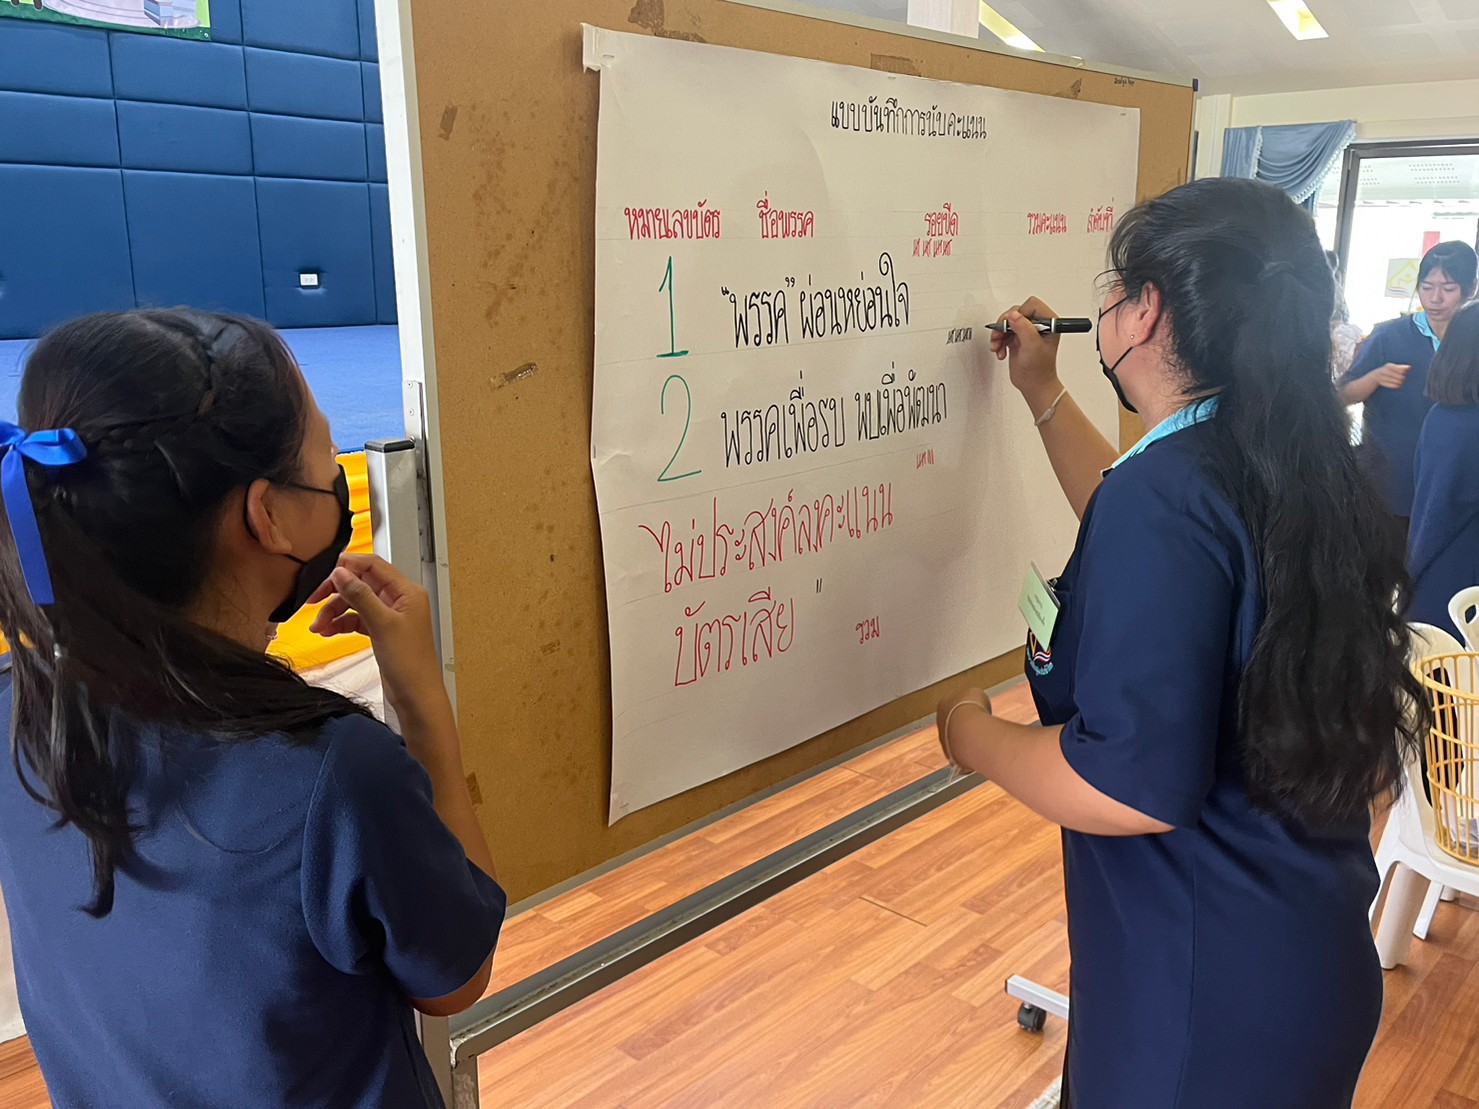 แบบบันทึกการนับคะแนน
หมายเลขบัตร ชื่อพรรค รอยขีด รวมคะแนน ลำดับที่
1 "พรรค" ผ่อนหย่อนใจ
2 พรรคเพื่อรบ พบเพื่อพัฒนา
ไม่ประสงค์ลงคะแนน
บัตรเสีย "
รวม